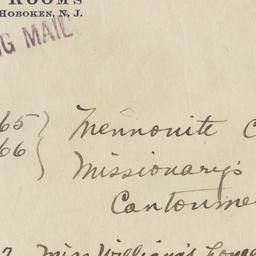 ROOMS
HOBOKEN, N. J.
G MAIL
65 } Mennonite C
66 } Missionary's
Cantonme
7 Miss William's